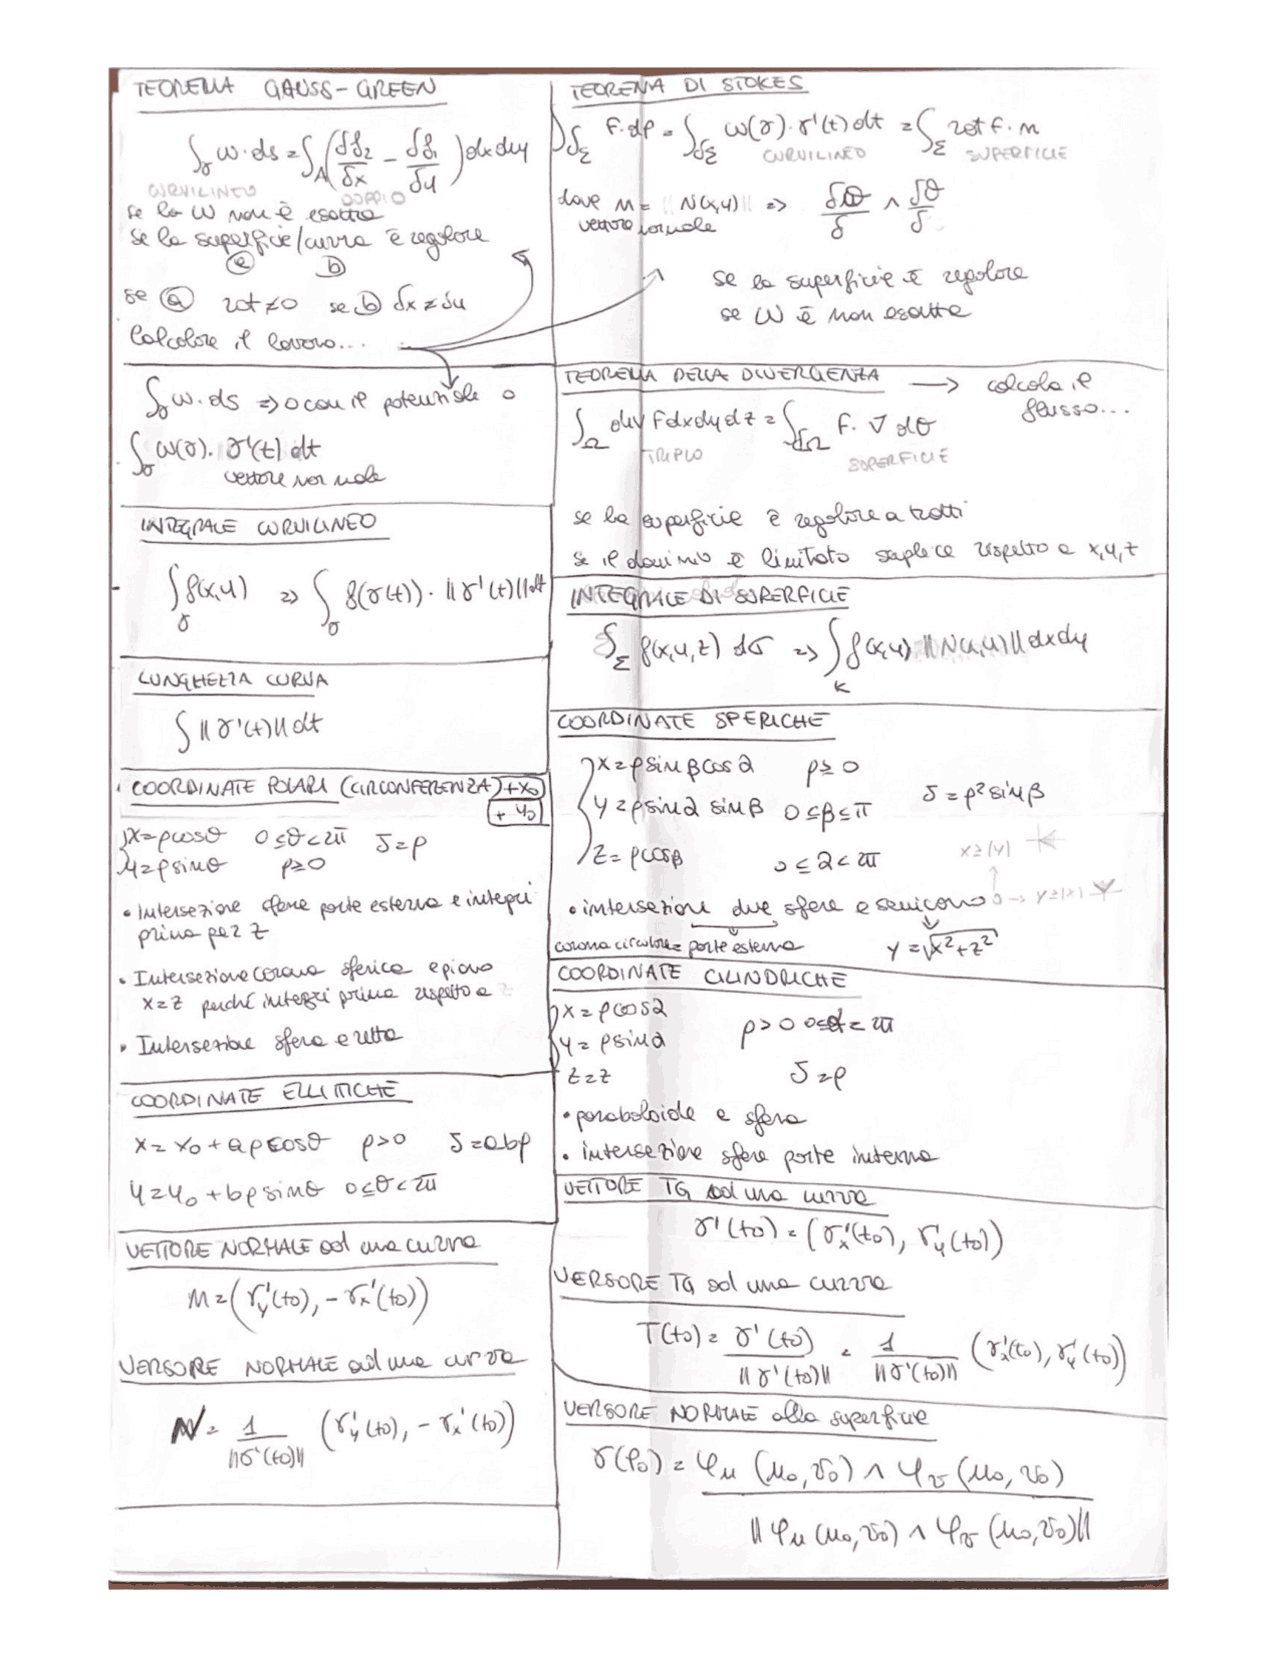 TEOREMA GAUSS-GREEN
∫γ ω·ds = ∫A (δf2/δx - δf1/δy) dxdy
CURVILINEO DOPPIO
se la ω non è esatta
se la superficie/curva è regolare
ⓐ ⓑ
se ⓐ rot≠0 se ⓑ δx≠δy
Calcolare il lavoro...
∫γ ω·ds => o con il potenziale o
∫γ ω(γ)·γ'(t) dt
vettore normale
INTEGRALE CURVILINEO
∫γ f(x,y) => ∫γ f(γ(t))·||γ'(t)||dt
LUNGHEZZA CURVA
∫ ||γ'(t)||dt
COORDINATE POLARI (CIRCONFERENZA) +x0
+ y0
x=ρcosθ 0≤θ<2π J=ρ
y=ρsinθ ρ≥0
• Intersezione sfere parte esterna e integri
prima per z
• Intersezione corona sferica e piano
x=z perché integri prima rispetto a z
• Intersezione sfera e retta
COORDINATE ELLITTICHE
x=x0+aρcosθ ρ>0 J=abρ
y=y0+bρsinθ 0≤θ<2π
VETTORE NORMALE ad una curva
M=(γy'(t0),-γx'(t0))
VERSORE NORMALE ad una curva
N= 1/||γ'(t0)|| (γy'(t0),-γx'(t0))
TEOREMA DI STOKES
∫δΣ F·dρ = ∫δΣ ω(γ)·γ'(t)dt = ∫Σ rot f·n
CURVILINEO SUPERFICIE
dove n= ||N(x,y)|| => δθ/δ ∧ δθ/δ
vettore normale
se la superficie è regolare
se ω è non esatta
TEOREMA DELLA DIVERGENZA → calcola il
flusso...
∫Ω div F dxdydz = ∫δΩ F·∇ dσ
TRIPLO SUPERFICIE
se la superficie è regolare a tratti
se il dominio è limitato semplice rispetto a x,y,z
INTEGRALE DI SUPERFICIE
∫Σ f(x,y,z) dσ => ∫K f(x,y) ||N(x,y)||dxdy
COORDINATE SFERICHE
x=ρsinβcosα ρ≥0
y=ρsinα sinβ 0≤β≤π J=ρ²sinβ
z=ρcosβ 0≤α<2π x≥|y|
• intersezioni due sfere e semicono → y≥|x|
corona circolare= parte esterna y=√x²+z²
COORDINATE CILINDRICHE
x=ρcosα
y=ρsinα ρ>0 0≤α≤2π
z=z J=ρ
• paraboloide e sfera
• intersezione sfere parte interna
VETTORE TG ad una curva
γ'(t0)=(γx'(t0),γy'(t0))
VERSORE TG ad una curva
T(t0)= γ'(t0)/||γ'(t0)|| = 1/||γ'(t0)|| (γx'(t0),γy'(t0))
VERSORE NORMALE alla superficie
γ(P0)= φu(u0,v0) ∧ φv(u0,v0)
||φu(u0,v0) ∧ φv(u0,v0)||